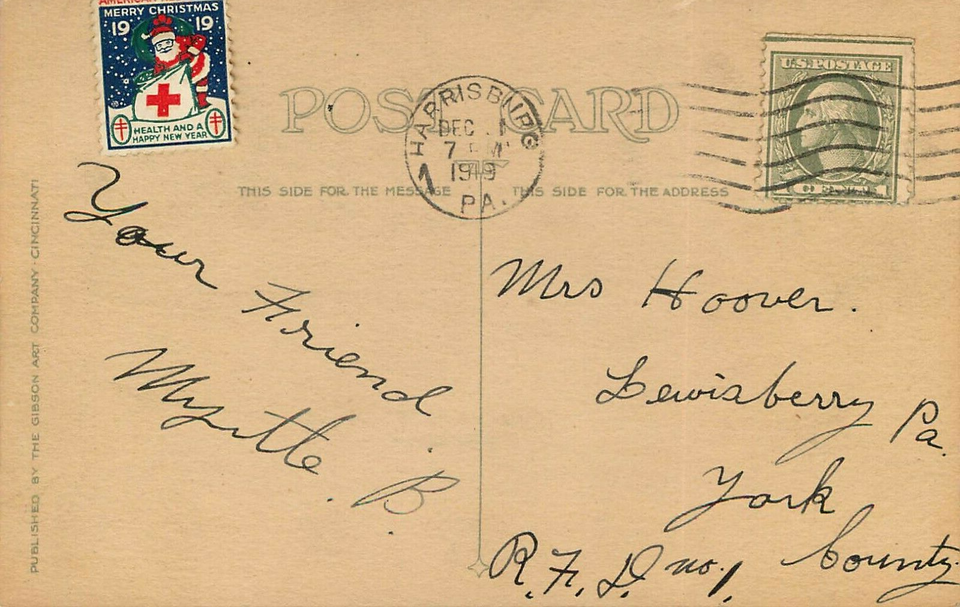 MERRY CHRISTMAS
19 19
HEALTH AND A
HAPPY NEW YEAR
POST CARD
HARRISBURG
DEC
7
1919
PA.
1
U.S. POSTAGE
THIS SIDE FOR THE MESSAGE
THIS SIDE FOR THE ADDRESS
Your Friend
Myrtle. B.
Mrs Hoover.
Lewisberry Pa.
York
County.
R. F. D. no. 1.
PUBLISHED BY THE GIBSON ART COMPANY · CINCINNATI